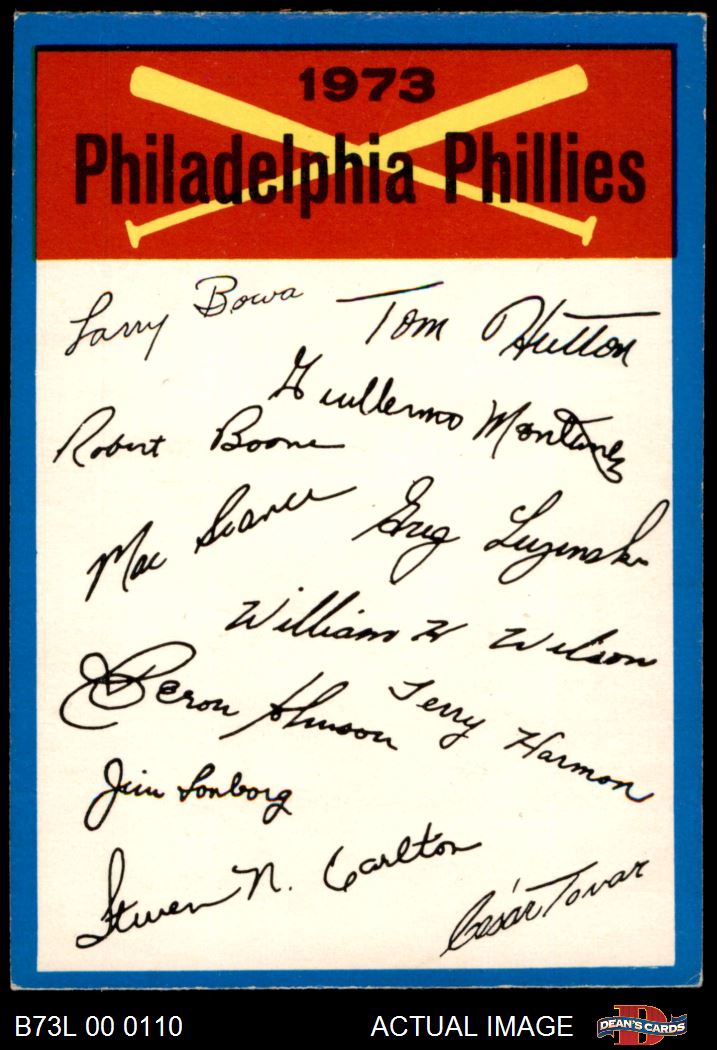 1973
Philadelphia Phillies
Larry Bowa
Tom Hutton
Guillermo Montanez
Robert Boone
Mac Scarce
Greg Luzinski
William H Wilson
Deron Johnson
Terry Harmon
Jim Lonborg
Steven N. Carlton
César Tovar
B73L 00 0110
ACTUAL IMAGE
D
DEAN'S CARDS